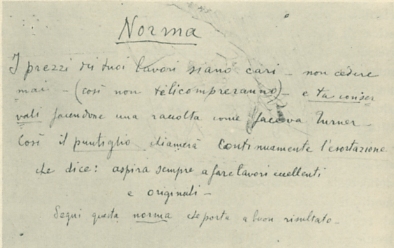 Norma
I prezzi dei tuoi lavori siano cari – non cedere
mai – (così non te li compreranno) – e tu conser
vali facendone una raccolta come faceva Turner
Così il puntiglio chiamerà continuamente l'esortazione
che dice: aspira sempre a fare lavori eccellenti
e originali –
Segui questa norma che porta a buon risultato –